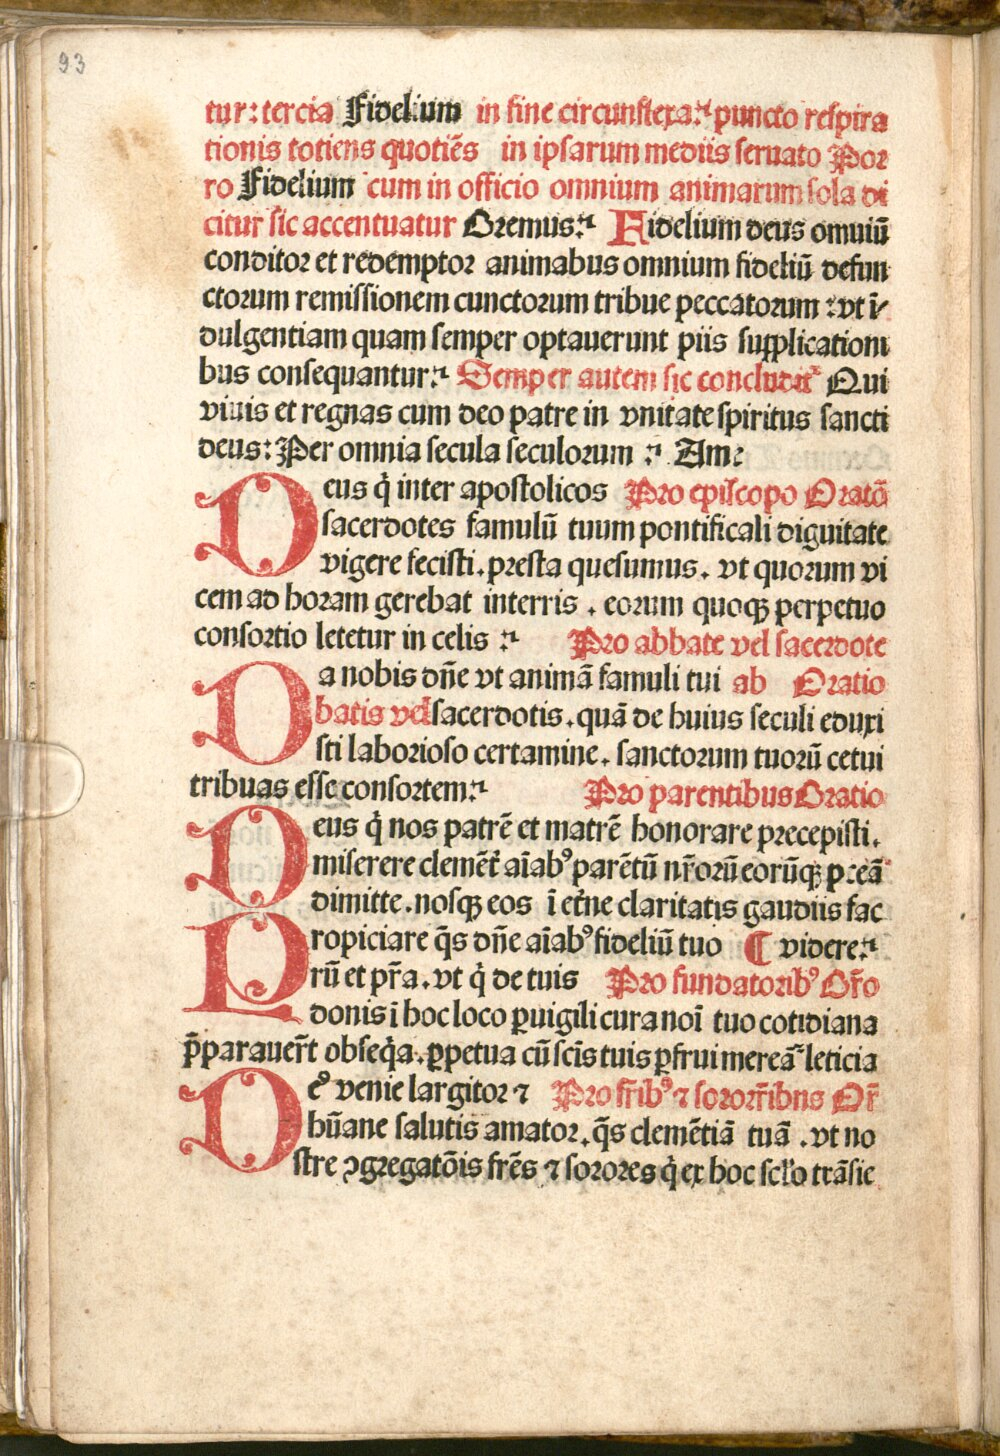 93
tur: tercia Fidelium in fine circunflexa: puncto respira
tionis totiens quotiēs in ipsarum mediis seruato Por
ro Fidelium cum in officio omnium animarum sola di
citur sic accentuatur Oremus: Fidelium deus omniū
conditor et redemptor animabus omnium fideliū defun
ctorum remissionem cunctorum tribue peccatorum : vt ī
dulgentiam quam semper optauerunt piis supplicationi
bus consequantur: Semper autem sic concludit Qui
viuis et regnas cum deo patre in vnitate spiritus sancti
deus: Per omnia secula seculorum : Am
Deus q̇ inter apostolicos Pro episcopo Oratō
sacerdotes famulū tuum pontificali dignitate
vigere fecisti. presta quesumus. vt quorum vi
cem ad horam gerebat interris . eorum quoqꝫ perpetuo
consortio letetur in celis : Pro abbate vel sacerdote
Da nobis dn̄e vt animā famuli tui ab Oratio
batis vel sacerdotis. quā de huius seculi eduxi
sti laborioso certamine. sanctorum tuorū cetui
tribuas esse consortem: Pro parentibus Oratio
Deus q̇ nos patrē et matrē honorare precepisti.
miserere clemēt̄ aīabꝰ parētū nr̄orū eorūqꝫ pctā
dimitte. nosqꝫ eos ī etn̄e claritatis gaudiis fac
Propiciare q̄s dn̄e aīabꝰ fideliū tuo ¶ videre:
rū et pr̄a. vt q̇ de tuis Pro fundatoribꝰ Or̄o
donis ī hoc loco ꝑuigili cura noī tuo cotidiana
p̄parauer̄t obseq̇a. ꝑpetua cū scīs tuis ꝑfrui mereā leticia
Deꝰ venie largitor ⁊ Pro fr̄ibꝰ ⁊ sororr̄ibus Or̄
hūane salutis amator. q̄s clemētiā tuā . vt no
stre ꝯgregatōis fr̄es ⁊ sorores q̇ ex hoc scl̓o trāsie